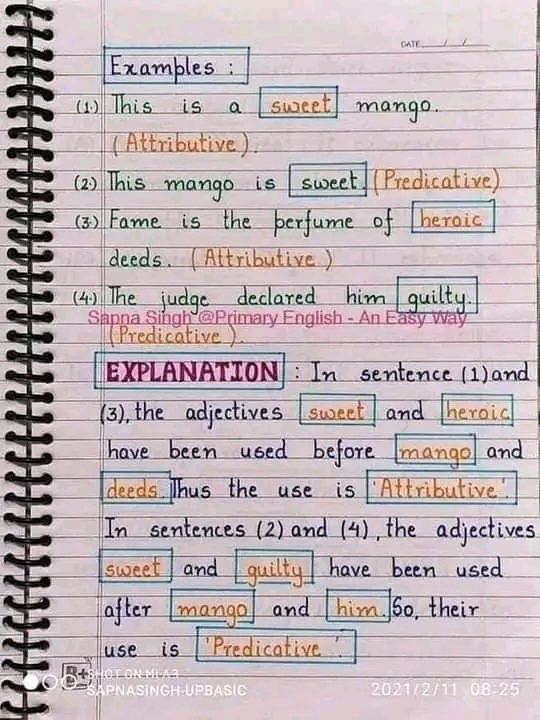 DATE __/__/__
Examples :
(1.) This is a sweet mango.
(Attributive).
(2.) This mango is sweet. (Predicative)
(3.) Fame is the perfume of heroic
deeds. (Attributive)
(4.) The judge declared him guilty.
Sapna Singh @Primary English - An Easy Way
(Predicative).
EXPLANATION : In sentence (1) and
(3), the adjectives sweet and heroic
have been used before mango and
deeds. Thus the use is 'Attributive'.
In sentences (2) and (4), the adjectives
sweet and guilty have been used
after mango and him. So, their
use is 'Predicative'.
SHOT ON MI A3
SAPNASINGH-UPBASIC
2021/2/11 08:25